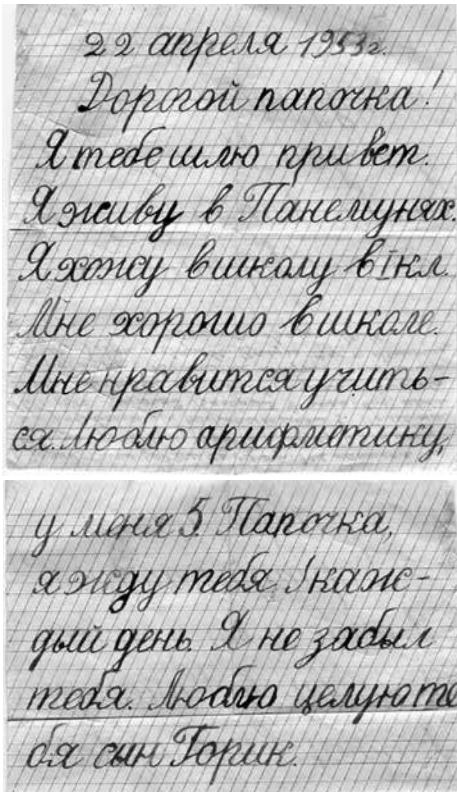 22 апреля 1953г.
Дорогой папочка!
Я тебе шлю привет.
Я живу в Панемунях.
Я хожу в школу в I кл.
Мне хорошо в школе.
Мне нравится учить-
ся. Люблю арифметику,
у меня 5. Папочка,
я жду тебя каж-
дый день. Я не забыл
тебя. Люблю целую те
бя сын Горик.